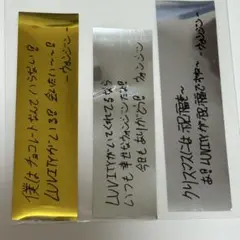 僕はチョコレートなんていらない!
LUVITYがいる!! 会いたい〜〜!
-ウォンジン-
LUVITYがいてくれてるなら
いつも幸せなウォンジンだよ!
今日もありがとう! -ウォンジン-
クリスマスには祝福を〜
あ! LUVITYが祝福でね〜
-ウォンジン-